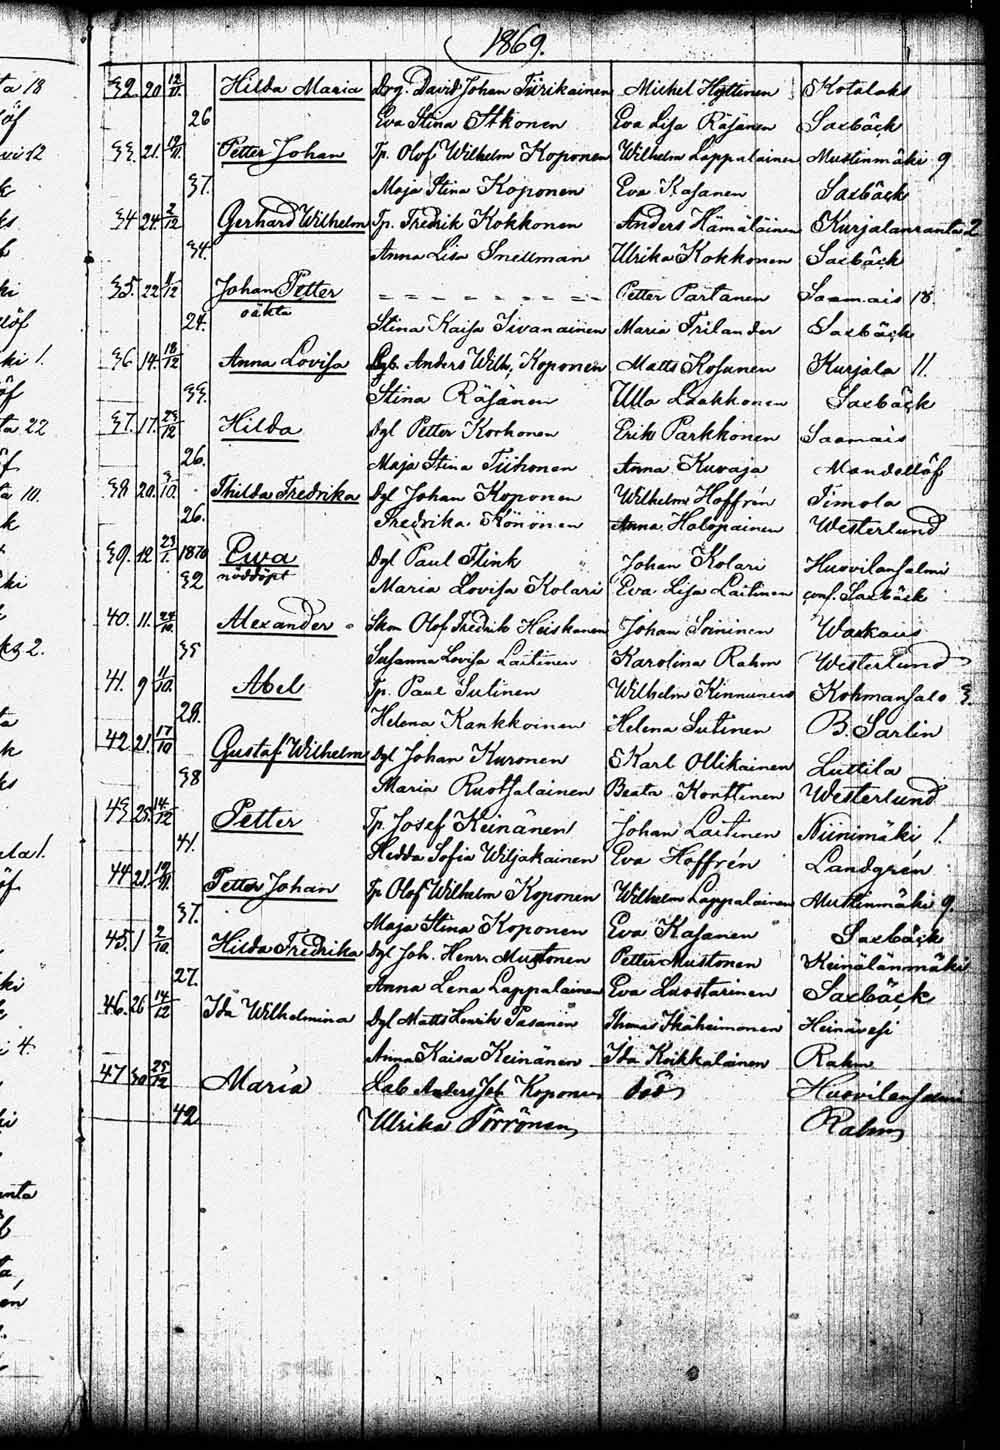 1869.
32. 20 12/11. Hilda Maria Drg. David Johan Tiirikainen Michel Hyttinen Kotalaks
26 Eva Stina Itkonen Eva Lisa Räsänen Saxbäck
33. 21. 19/11. Petter Johan Tp. Olof Wilhelm Koponen Wilhelm Lappalainen Mustinmäki 9
37. Maja Stina Koponen Eva Kasanen Saxbäck
34 24. 2/12 Gerhard Wilhelm Tp. Fredrik Kokkonen Anders Hämäläinen Kurjalanranta 2
34. Anna Lisa Snellman Ulrika Kokkonen Saxbäck
35. 22 /12 Johan Petter Petter Partanen Saamais 18.
oäkta
24. Stina Kaisa Iivanainen Maria Frilander Saxbäck
36 14. 18/12 Anna Lovisa Anders Wilh. Koponen Matts Kosunen Kurjala 11.
33. Stina Räsänen Ulla Laakkonen Saxbäck
37. 17. 25/12 Hilda Dgl Petter Korhonen Erik Parkkonen Saamais
26. Maja Stina Tiihonen Anna Kuvaja Mandellöf
38 20. /10. Thilda Fredrika Dgl Johan Koponen Wilhelm Hoffrén Timola
26. Fredrika Könönen Anna Halopainen Westerlund
39. 12 23/1. 1870 Ewa Dgl Paul Flink Johan Kolari Huovilansalmi
nöddöpt
32 Maria Lovisa Kolari Eva Lisa Laitinen conf. Saxbäck
40. 11. 24/10. Alexander Skom Olof Fredrik Heiskanen Johan Soininen Warkaus
35 Susanna Lovisa Laitinen Karolina Rahm Westerlund
41. 9 11/10. Abel Tp. Paul Sutinen Wilhelm Kinnunen Kohmansalo 3.
28. Helena Kankkoinen Helena Sutinen B. Sarlin
42. 21. 17/10 Gustaf Wilhelm Dgl Johan Kuronen Karl Ollikainen Luttila
38 Maria Ruotsalainen Beata Konttinen Westerlund
43. 25. 14/12 Petter Tp. Josef Keinänen Johan Laitinen Niinimäki 1.
41. Hedda Sofia Wiljakainen Eva Hoffrén Landgrén
44 21. 19/11. Petter Johan Tp Olof Wilhelm Koponen Wilhelm Lappalainen Mustinmäki 9.
37. Maja Stina Koponen Eva Kasanen Saxbäck
45. 1 2/10. Hilda Fredrika Dgl Joh. Henr. Mustonen Petter Mustonen Keinälänmäki
27. Anna Lena Lappalainen Eva Luostarinen Saxbäck
46. 26 14/12 Ida Wilhelmina Dgl Matts Henrik Pasanen Thomas Ikäheimonen Heinävesi
Anna Kaisa Keinänen Ida Koikkalainen Rahm
47 30 25/12 Maria Lab Anders Joh Koponen död Huovilansalmi
42 Ulrika Törrönen Rahm